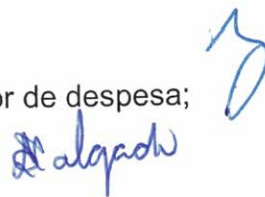 or de despesa;
Salgado